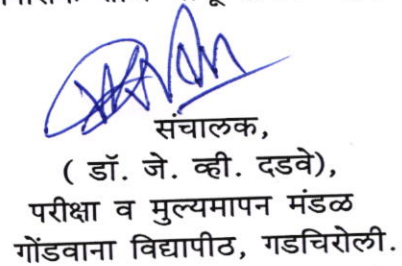 संचालक,
( डॉ. जे. व्ही. दडवे),
परीक्षा व मुल्यमापन मंडळ
गोंडवाना विद्यापीठ, गडचिरोली.